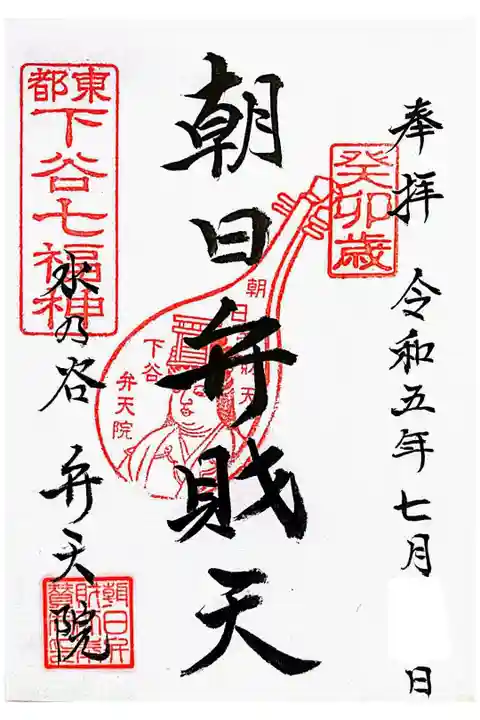 奉拝
癸卯歳
令和五年七月 日
朝日弁財天
朝日弁財天
下谷
弁天院
東都
下谷七福神
水の谷 弁天院